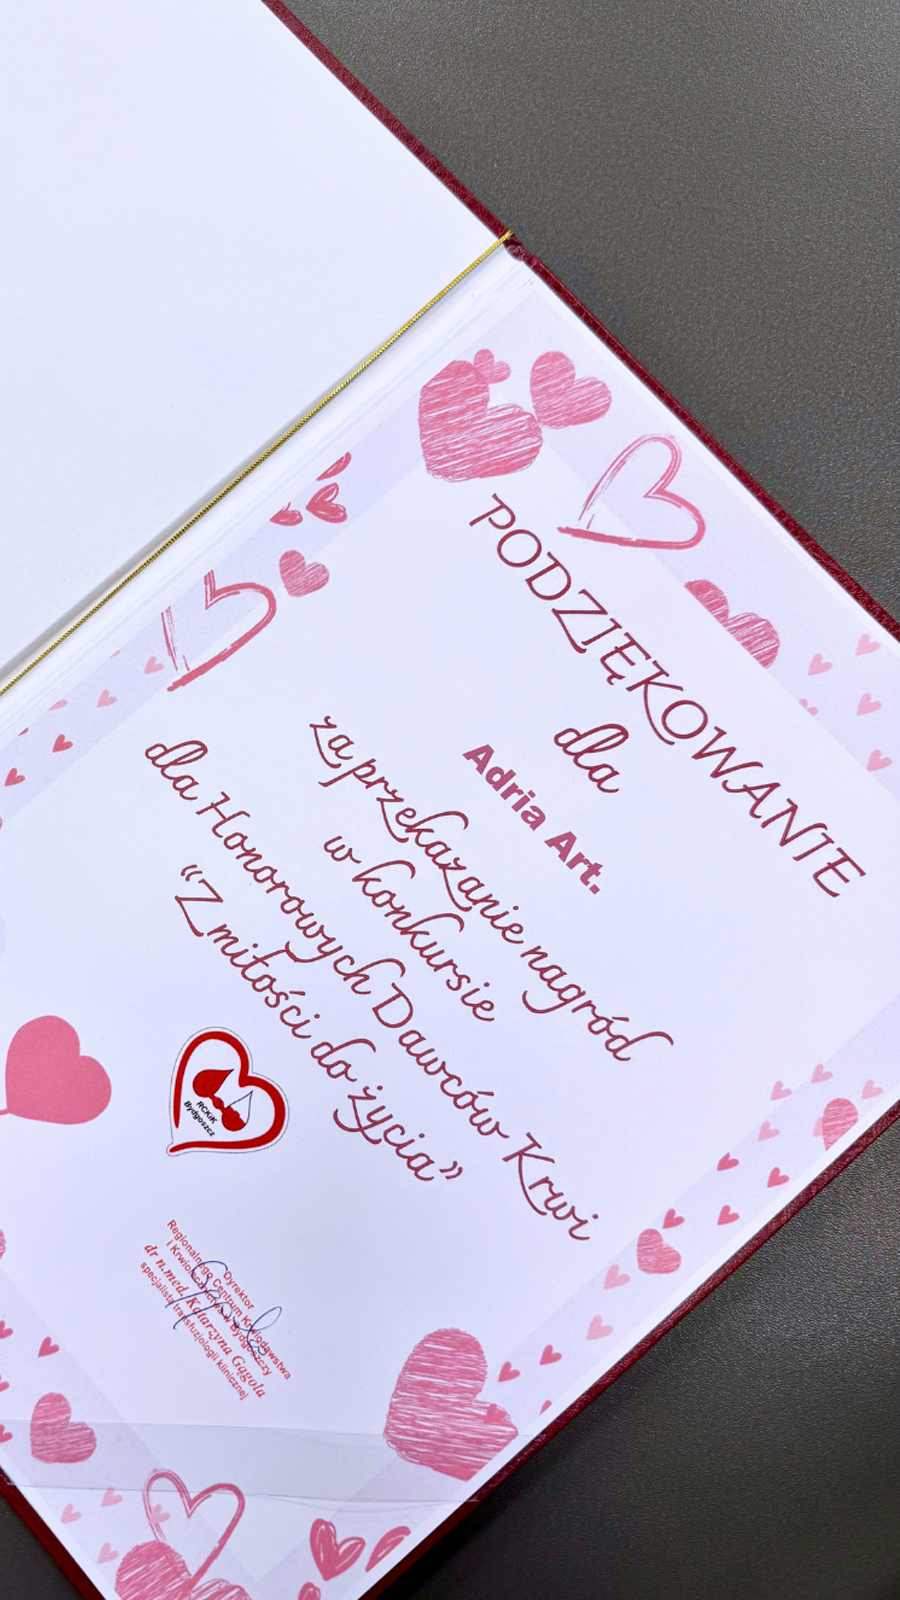 PODZIĘKOWANIE
dla
Adria Art.
za przekazanie nagród
w konkursie
dla Honorowych Dawców Krwi
“Z miłości do życia”
RCKiK
Bydgoszcz
Dyrektor
Regionalnego Centrum Krwiodawstwa
i Krwiolecznictwa w Bydgoszczy
dr n.med. Katarzyna Gągola
specjalista transfuzjologii klinicznej